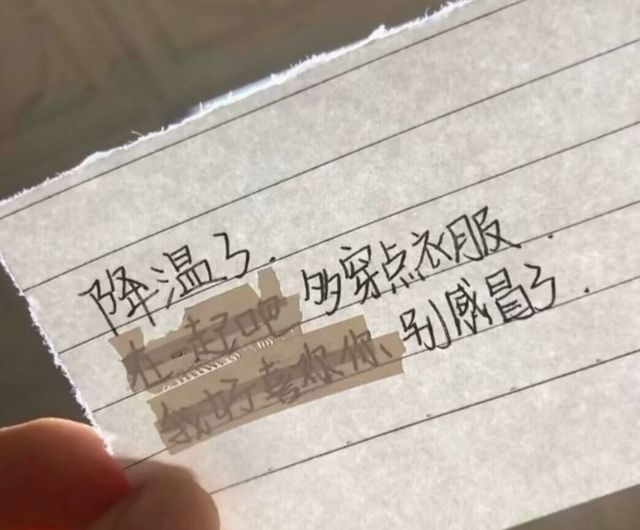 降温了.
在一起吧 多穿点衣服.
我好喜欢你、别感冒了.